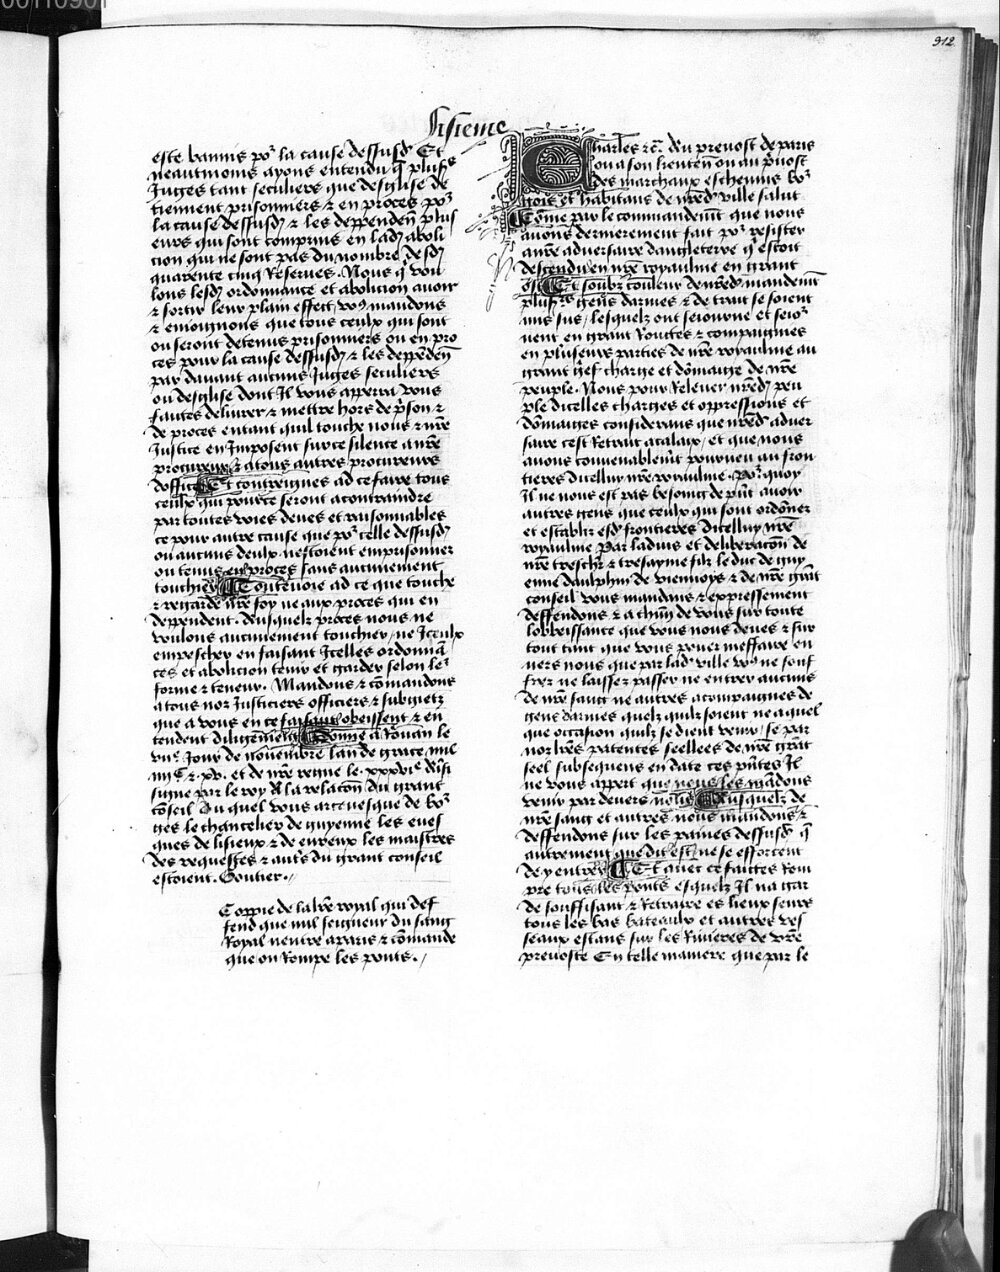 912
Sisieme
este bannis po᷑ la cause dessusd̾ Et
neautmoins ayons entendu q̄ plus᷑s
Juges tant seculiers que desglise de
tiennent prisonniers ⁊ en proces po᷑
la cause dessusd̾ ⁊ les deppenden̄ plus
eurs qui sont comprins en lad̾ aboli
cion qui ne sont pas du nombre desd̾
quarente cinq Reserues. Nous q̄ vou
lons lesd̾ ordonnance et abolicion auoir
⁊ sortir leur plain effect, vo᷒ mandons
⁊ enioignons que tous ceulx qui sont
ou seront detenus prisonniers ou en pro
ces pour la cause dessusd̾ ⁊ les deppenden̄
par dauant aucuns Juges seculiers
ou desglise dont Il vous apperra vous
faictes deliurer ⁊ mettre hors de p̄son ⁊
de proces entant quil touche nous ⁊ nr̄e
Justice en Imposent surce silence a nr̄e
procureur ⁊ a tous autres procureurs
doffice Et contreignes ad ce faire tous
ceulx qui pource seront acontraindre
par toutes voies deues et raisonnables
ce pour autre cause que po᷑ celle dessusd̾
ou aucuns deulx nestoient emprisonner
ou tenus en proces sans aucunement
touchier Et ad ce que touche
⁊ regarde nr̄e foy ne aux proces qui en
deppendent. Ausquelz proces nous ne
voulons aucunement toucher, ne Iceulx
empescher en faisant Icelles ordonnā
ces et abolicion tenir et garder selon le᷑
forme ⁊ teneur. Mandons ⁊ cōmandons
a tous noz Justiciers officiers ⁊ subgietz
que a vous en ce faisant obeissent ⁊ en
tendent diligēment Donne a Rouan le
vii᷑ Jour de nouembre lan de grace mil
iiij᷑ ⁊ xv. et de nr̄e regne le. xxxvi᷑ Ainsi
signe par le roy A la relacōn du grant
cōseil Au quel vous arceuesque de bo᷑
ges le chancelier de guyenne les eues
ques de lisieux ⁊ de eureux les maistres
des requestes ⁊ aut̄s du grant conseil
estoient. Gontier.
Coppie de la lr̄e royal qui def
fend que nul seigneur du sang
Royal nentre a paris ⁊ cōmande
que on Rompe les pons.
Charles ⁊c̄. Au preuost de paris
ou a son lieuten̄ ou au p̄uost
des marchaux escheuins bo᷑
gois et habitans de nr̄ed̾ ville salut
Cōme par le commandemēt que nous
auons dernierement fait po᷑ resister
a nr̄e aduersaire dangleterre q̄ estoit
descendu en nr̄e royaulme en grant
ost Et soubz couleur de nr̄ed̾ mandemēt
plus᷑s gens darmes ⁊ de trait se soient
mis sus, lesquelz ont seiourne et seio᷑
nent en grant Routes ⁊ compaignies
en pluseurs parties de nr̄e royaulme au
grant g̾ef charge et dōmaige de nr̄e
peuple. Nous pour Releuer nr̄ed̾ peu
ple dicelles charges et oppressions et
dōmaiges considerans que nr̄ed̾ aduer
saire cest Retrait a calaix, et que nous
auons conuenablemēt pourueu au fron
tieres dicelluy nr̄e royaulme. Po᷑ quoy
Il ne nous est pas besoing de p̄nt auoir
autres gens que ceulx qui sont ordōnez
et establiz esd̾ frontieres dicelluy nr̄e
royaulme Par laduis et deliberacōn de
nr̄e treschr̄ ⁊ tresayme filz le duc de guy
enne daulphin de viennoys ⁊ de nr̄e grāt
conseil vous mandons ⁊ expressement
deffendons ⁊ a chūn de vous sur toute
lobeissance que vous nous deues ⁊ sur
tout tant que vous pouez meffaire en
uers nous que par lad̾ ville vo᷒ ne souf
frez ne laissez passer ne entrer aucuns
de nr̄e sanc ne autres acompaignes de
gens darmes quelz quilz soient ne a quel
que occasion quilz se dient venir, se par
noz lr̄es patentes seellees de nr̄e grāt
seel subsequens en date ces p̄ntes Il
ne vous appert que nous les mandons
venir par deuers nous Ausquelz de
nr̄e sanc et autres nous mandons ⁊
deffendons sur les paines dessusd̾ q̄
autrement que dit est ne se efforcent
de y entrer Et auec ce faictes Rom
pre tous les ponts esquelz Il na gar
de souffisant ⁊ Retraire es lieux seurs
tous les bas bateaulx et autres ves
seaux estans sur les Riuieres de vr̄e
preuoste En telle maniere que par le